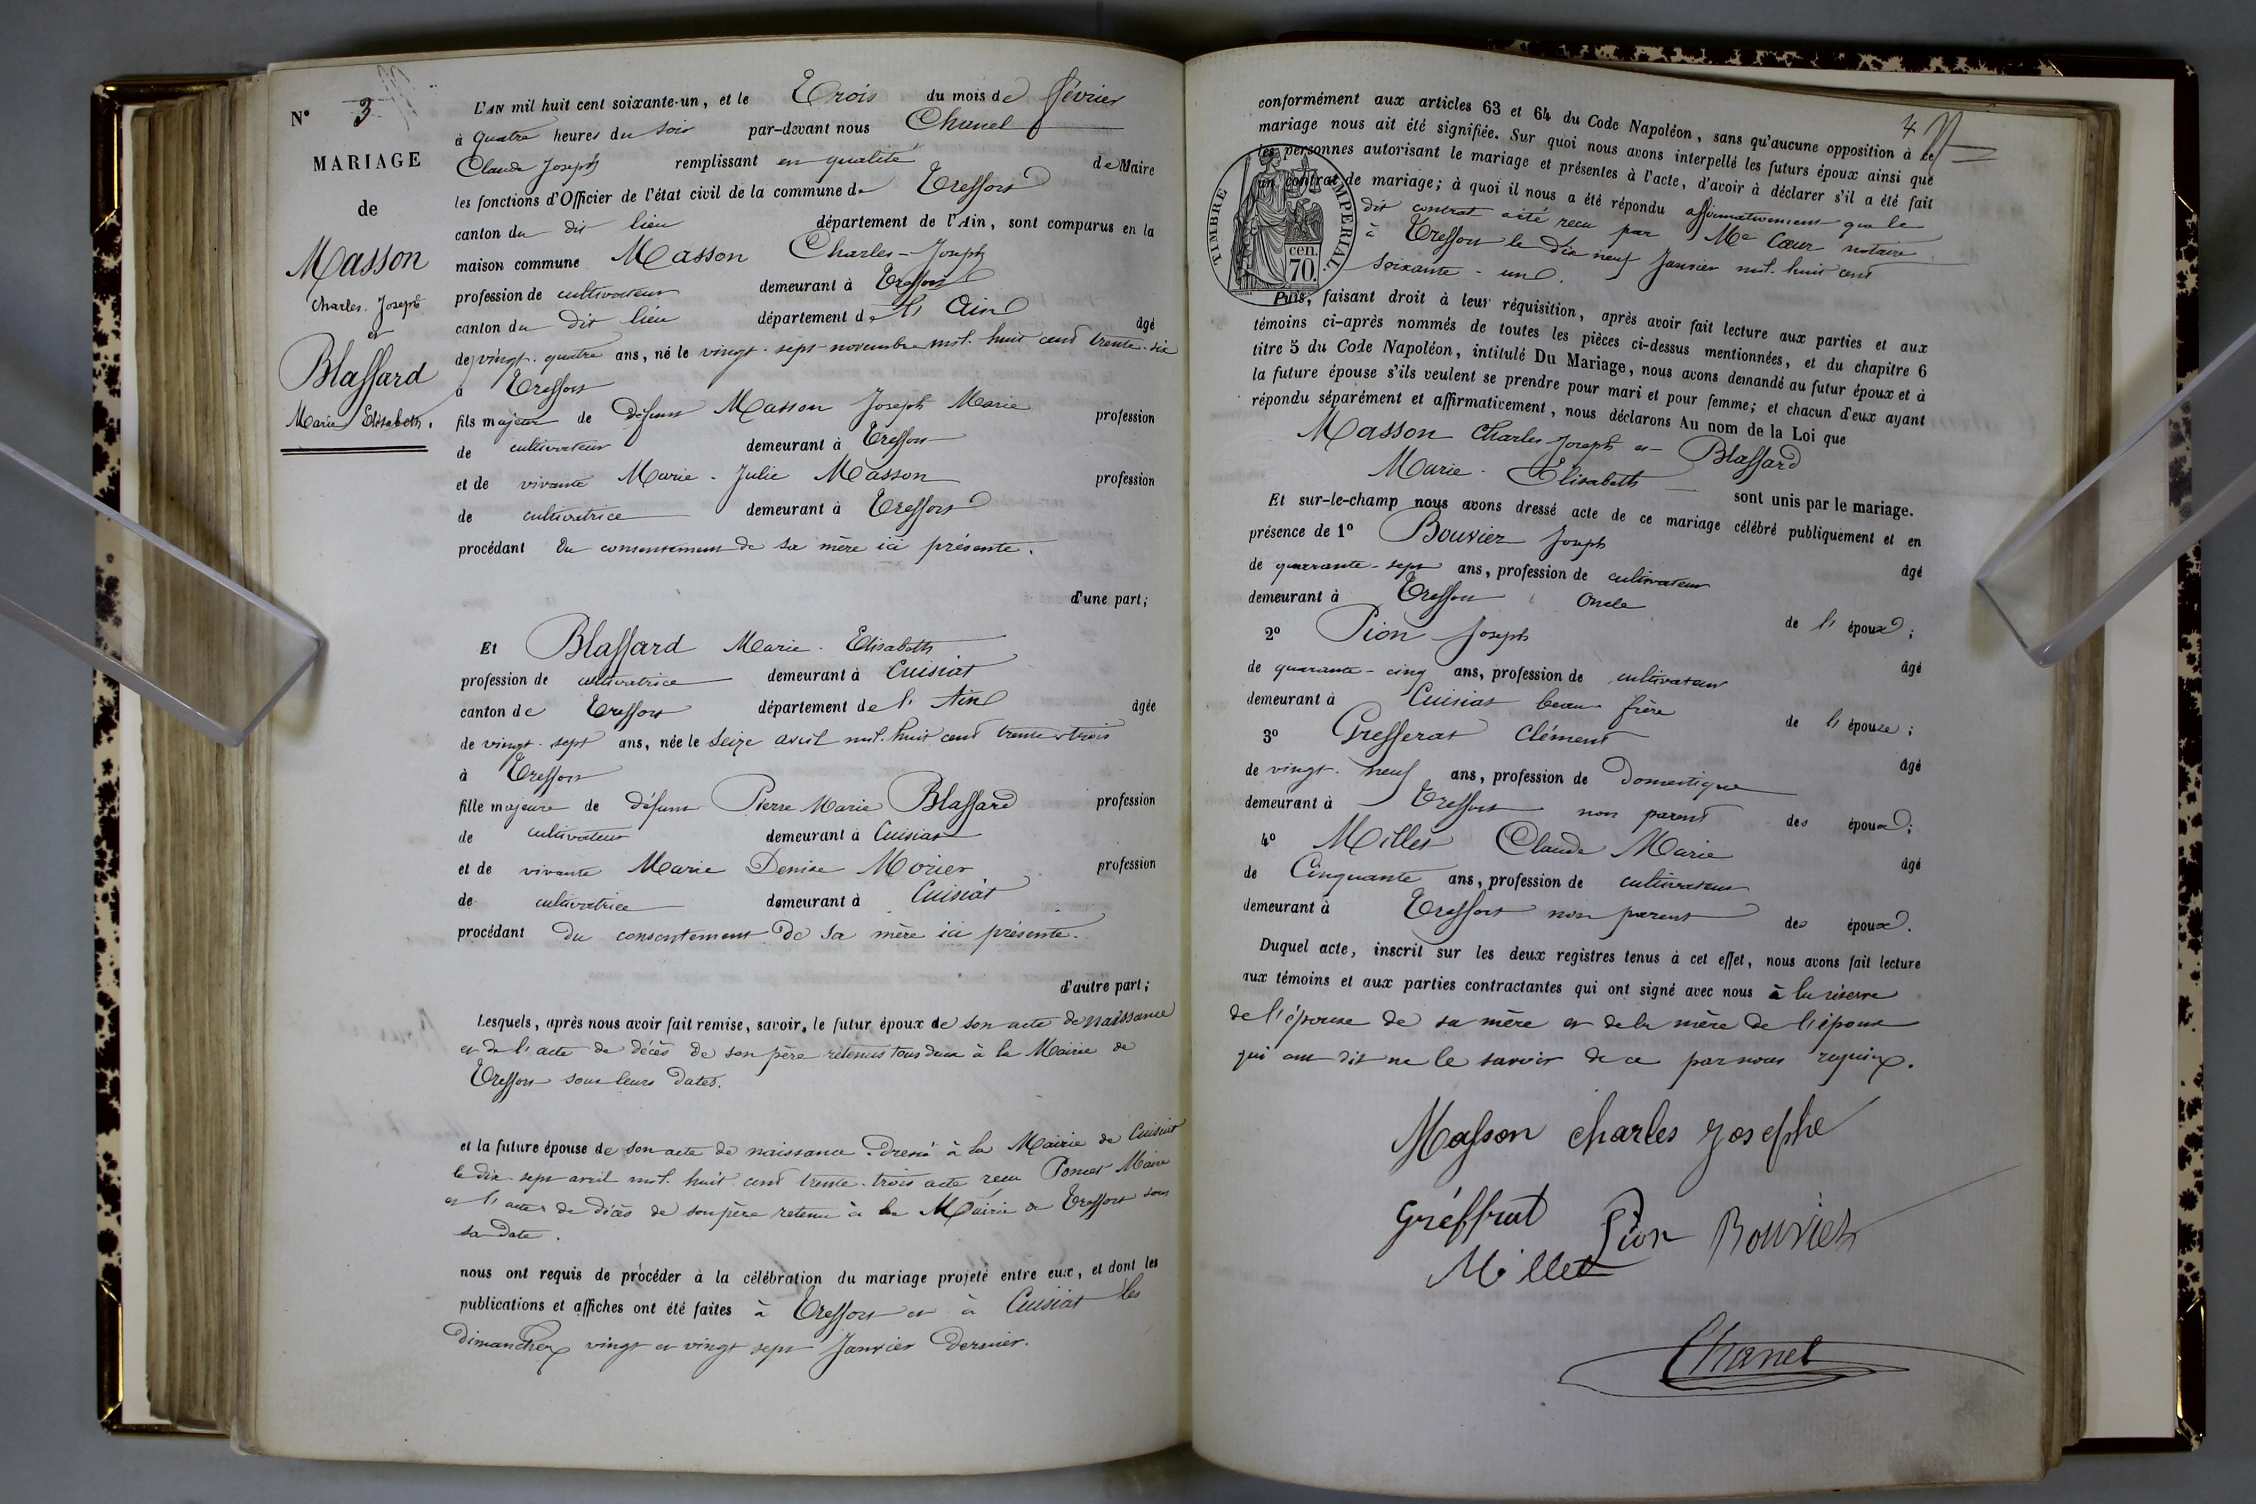 N° 3
MARIAGE
de
Masson
Charles. Joseph
et
Blassard
Marie Elisabeth.
L'AN mil huit cent soixante-un, et le Trois du mois de février
à quatre heures du soir par-devant nous Chanel
Claude Joseph remplissant en qualité de Maire
les fonctions d'Officier de l'état civil de la commune de Treffort
canton du dit lieu département de l'Ain, sont comparus en la
maison commune Masson Charles-Joseph
profession de cultivateur demeurant à Treffort
canton du dit lieu département de l'Ain âgé
de vingt-quatre ans, né le vingt-sept novembre mil-huit cent trente-six
à Treffort
fils majeur de défunt Masson Joseph Marie profession
de cultivateur demeurant à Treffort
et de vivante Marie-Julie Masson profession
de cultivatrice demeurant à Treffort
procédant du consentement de sa mère ici présente.
d'une part;
Et Blassard Marie-Elisabeth
profession de cultivatrice demeurant à Cuisiat
canton de Treffort département de l'Ain âgée
de vingt-sept ans, née le seize avril mil-huit cent trente-trois
à Treffort
fille majeure de défunt Pierre Marie Blassard profession
de cultivateur demeurant à Cuisiat
et de vivante Marie Denise Morier profession
de cultivatrice demeurant à Cuisiat
procédant du consentement de sa mère ici présente.
d'autre part;
Lesquels, après nous avoir fait remise, savoir, le futur époux de son acte de naissance
et de l'acte de décès de son père retenus tous deux à la Mairie de
Treffort sous leurs dates.
et la future épouse de son acte de naissance dressé à la Mairie de Cuisiat
le dix-sept avril mil-huit cent trente-trois acte reçu Poncet Maire
et l'acte de décès de son père retenu à la Mairie de Treffort sous
sa date.
nous ont requis de procéder à la célébration du mariage projeté entre eux, et dont les
publications et affiches ont été faites à Treffort et à Cuisiat les
dimanches vingt et vingt sept Janvier dernier.
4
conformément aux articles 63 et 64 du Code Napoléon, sans qu'aucune opposition à ce
mariage nous ait été signifiée. Sur quoi nous avons interpellé les futurs époux ainsi que
les personnes autorisant le mariage et présentes à l'acte, d'avoir à déclarer s'il a été fait
un contrat de mariage; à quoi il nous a été répondu affirmativement que le
dit contrat a été reçu par Me Cœur notaire
à Treffort le dix neuf Janvier mil-huit cent
soixante-un.
TIMBRE IMPERIAL
70 cen.
Puis, faisant droit à leur réquisition, après avoir fait lecture aux parties et aux
témoins ci-après nommés de toutes les pièces ci-dessus mentionnées, et du chapitre 6
titre 5 du Code Napoléon, intitulé Du Mariage, nous avons demandé au futur époux et à
la future épouse s'ils veulent se prendre pour mari et pour femme; et chacun d'eux ayant
répondu séparément et affirmativement, nous déclarons Au nom de la Loi que
Masson Charles Joseph et Blassard
Marie-Elisabeth sont unis par le mariage.
Et sur-le-champ nous avons dressé acte de ce mariage célébré publiquement et en
présence de 1° Bouvier Joseph âgé
de quarante-sept ans, profession de cultivateur
demeurant à Treffort Oncle de l'époux;
2° Pion Joseph âgé
de quarante-cinq ans, profession de cultivateur
demeurant à Cuisiat beau-frère de l'épouse;
3° Grefferat Clément âgé
de vingt-neuf ans, profession de Domestique
demeurant à Treffort non parent des époux;
4° Millet Claude Marie âgé
de Cinquante ans, profession de cultivateur
demeurant à Treffort non parent des époux.
Duquel acte, inscrit sur les deux registres tenus à cet effet, nous avons fait lecture
aux témoins et aux parties contractantes qui ont signé avec nous à la réserve
de l'épouse de sa mère et de la mère de l'époux
qui ont dit ne le savoir de ce par nous requis.
Masson charles josephe
Gréffrat Pion Bouvier
Millet
Chanel